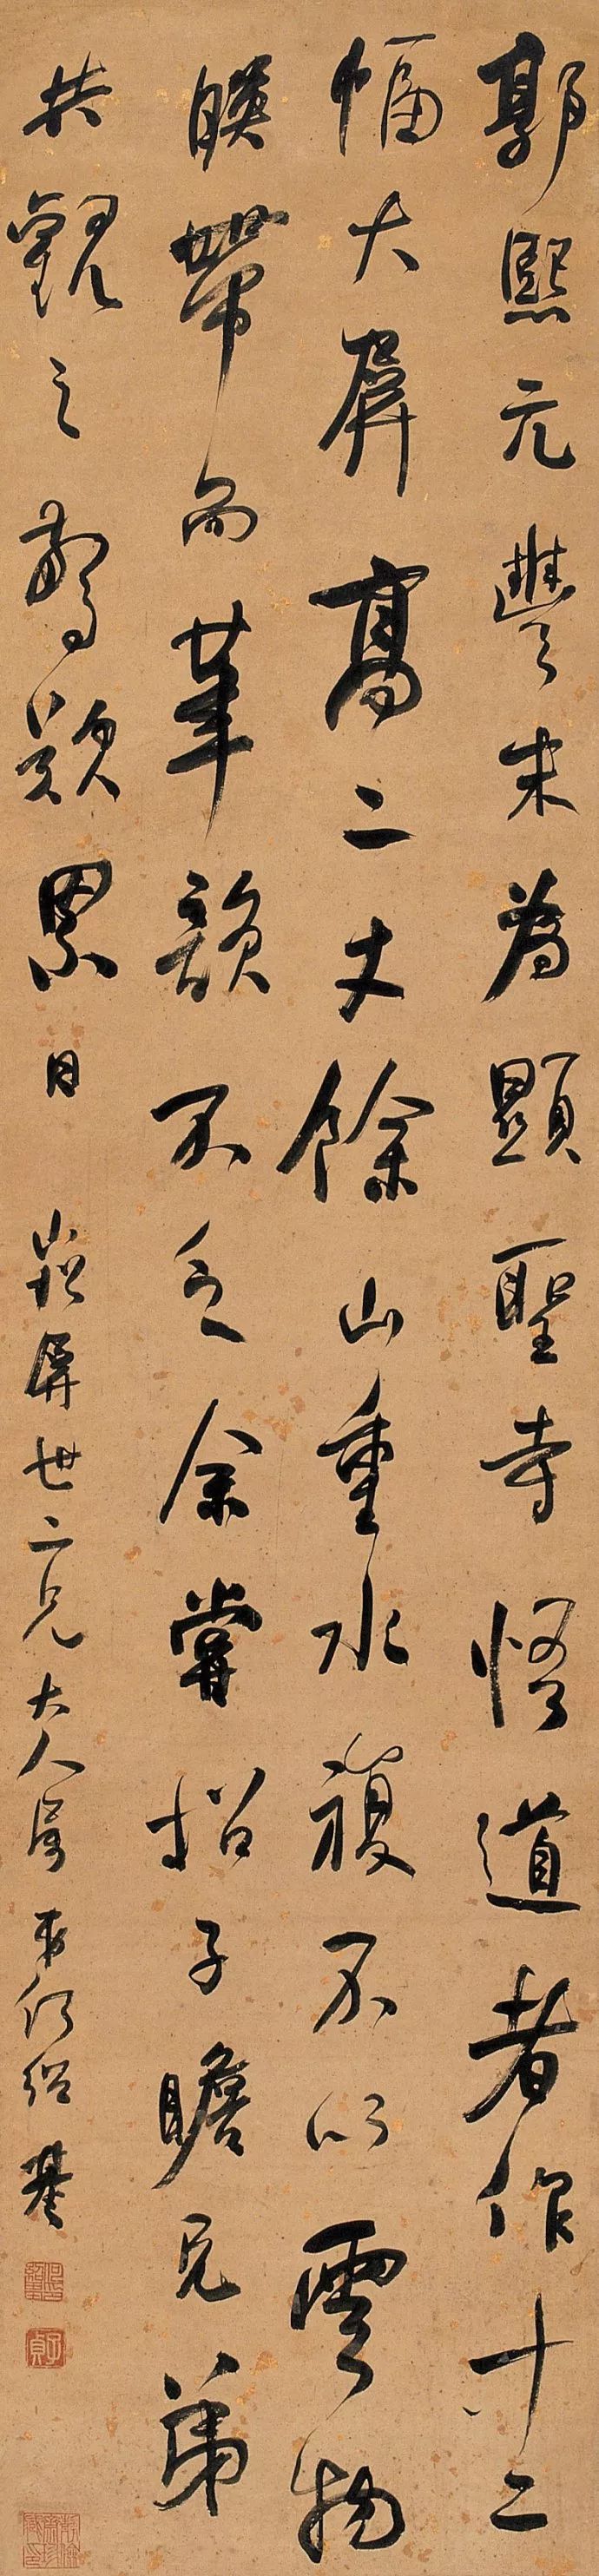 郭熙元豐末為顯聖寺悟道者作十二
幅大屏高二丈餘山重水複不以雲物
映帶而筆韻不乏余嘗招子瞻兄弟
共觀之驚歎累日 崧屏世二兄大人屬 弟何紹基
何紹基
子貞